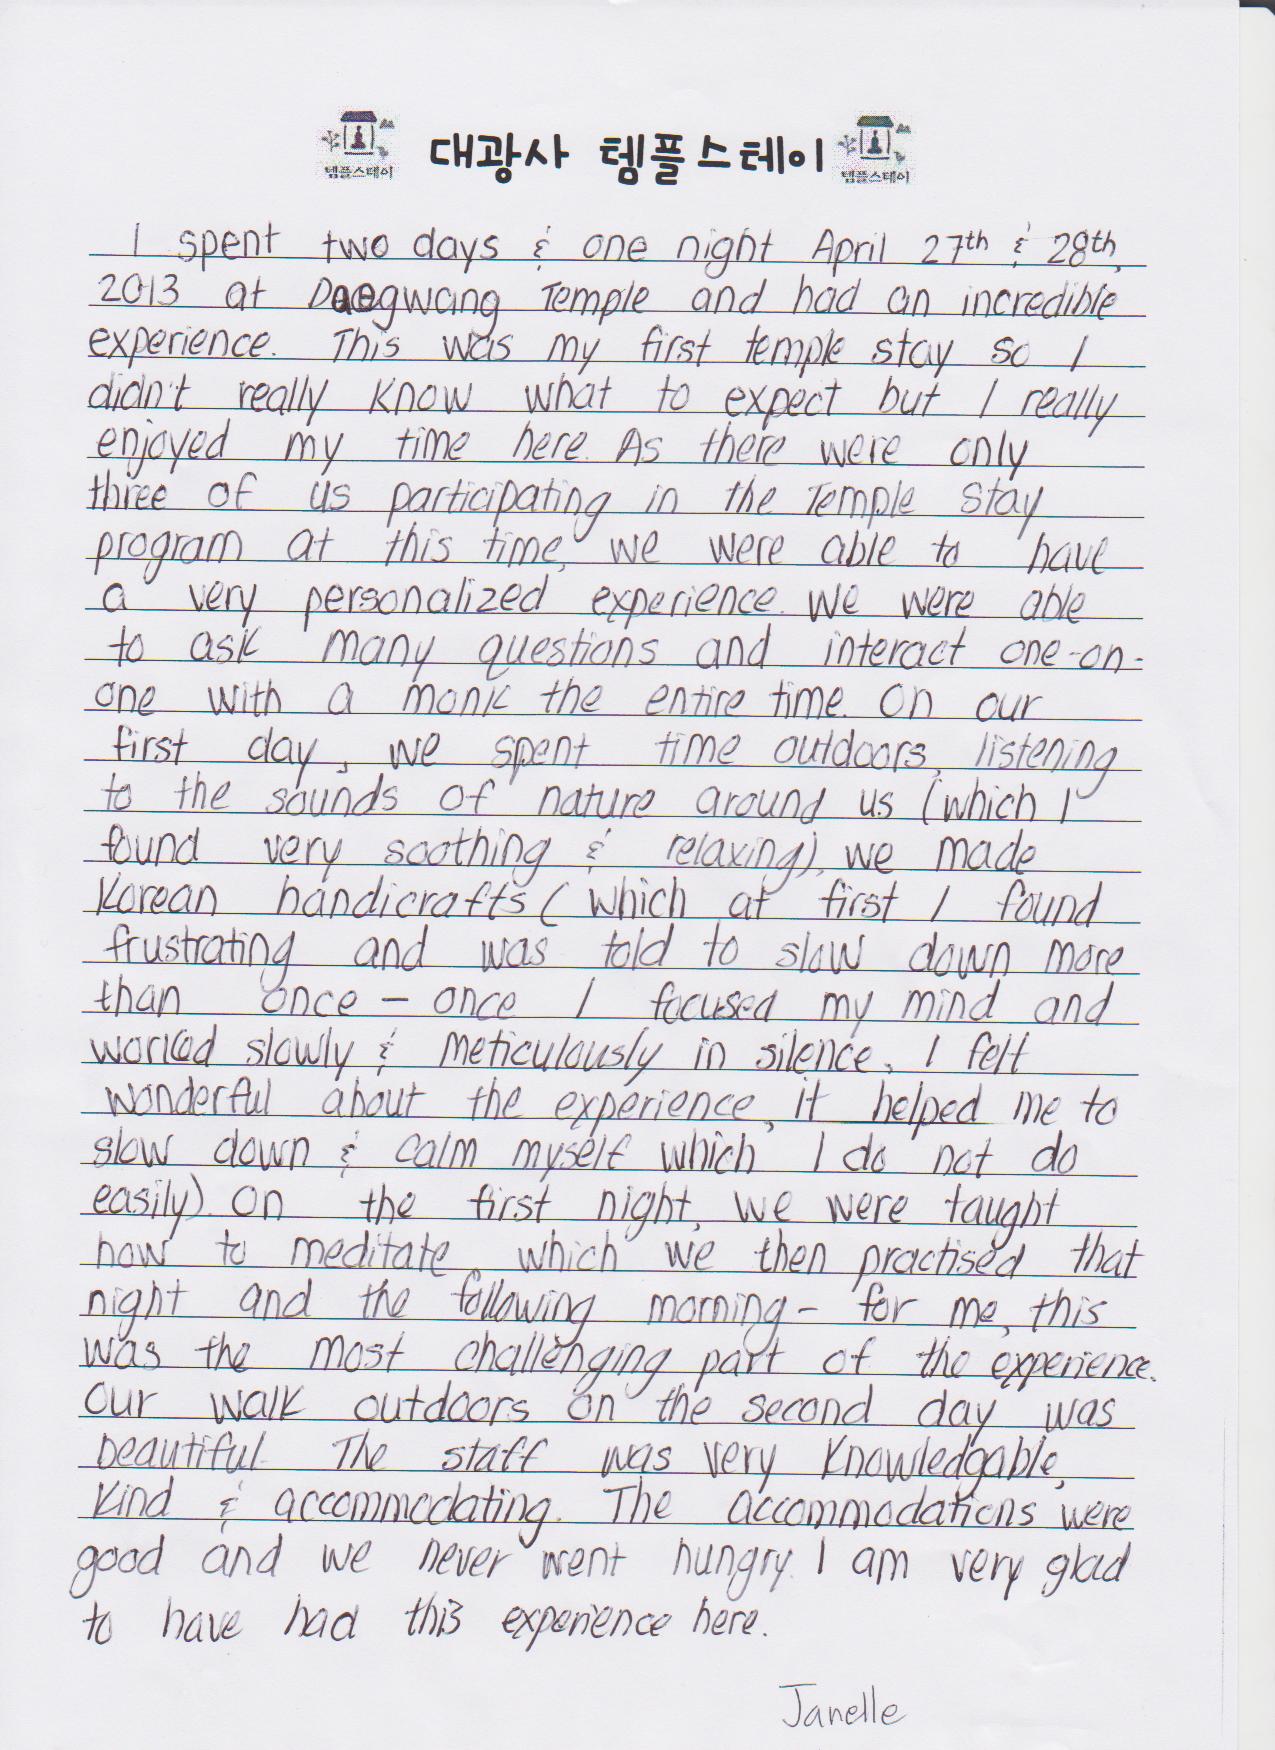 템플스테이 대광사 템플스테이 템플스테이
I spent two days & one night April 27th & 28th,
2013 at Daegwang Temple and had an incredible
experience. This was my first temple stay so I
didn't really know what to expect but I really
enjoyed my time here. As there were only
three of us participating in the Temple Stay
program at this time, we were able to have
a very personalized experience. We were able
to ask many questions and interact one-on-
one with a monk the entire time. On our
first day, we spent time outdoors, listening
to the sounds of nature around us (which I
found very soothing & relaxing), we made
Korean handicrafts (which at first I found
frustrating and was told to slow down more
than once - once I focused my mind and
worked slowly & meticulously in silence, I felt
wonderful about the experience, it helped me to
slow down & calm myself which I do not do
easily). On the first night, we were taught
how to meditate, which we then practised that
night and the following morning - for me, this
was the most challenging part of the experience.
Our walk outdoors on the second day was
beautiful. The staff was very knowledgable,
kind & accommodating. The accommodations were
good and we never went hungry. I am very glad
to have had this experience here.
Janelle